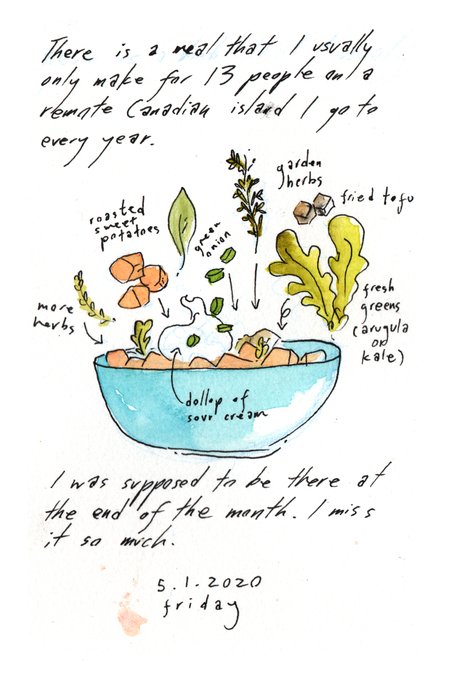 There is a meal that I usually
only make for 13 people on a
remote Canadian island I go to
every year.
garden
herbs
fried tofu
roasted
sweet
potatoes
green
onion
more
herbs
fresh
greens
(arugula
or
kale)
dollop of
sour cream
I was supposed to be there at
the end of the month. I miss
it so much.
5.1.2020
friday